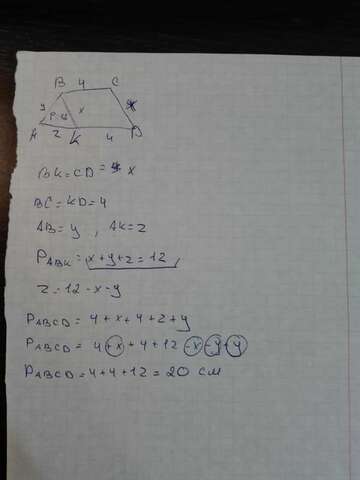 B 4 C
y P=12 x x
A z K 4 D
BK=CD= x
BC=KD=4
AB=y , AK=z
P ABK= x+y+z=12
z=12-x-y
P ABCD= 4+x+4+z+y
P ABCD= 4+x+4+12-x-y+y
P ABCD=4+4+12=20 см